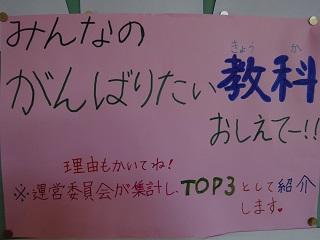 みんなの
がんばりたい教科
きょう か
おしえてー!!
理由もかいてね!
※運営委員会が集計し、TOP3として紹介
します。